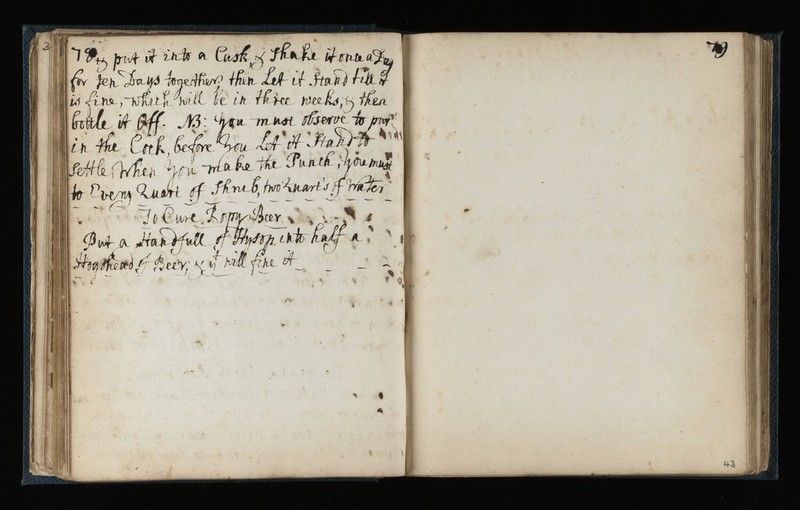 78 & put it into a Cask, & Shake it once a Day
for ten Days together, then Let it Stand till it
is fine, which will be in three weeks, & then
bottle it Off. NB: you must observe to put
in the Cock, before you Let it Stand to
Settle, When you make the Punch, you must
to Every Quart of Shrub, two Quart's of water
To Cure Ropy Beer
Put a Handfull of Hysop into half a
Hogshead of Beer, & yt will fine it
79
43